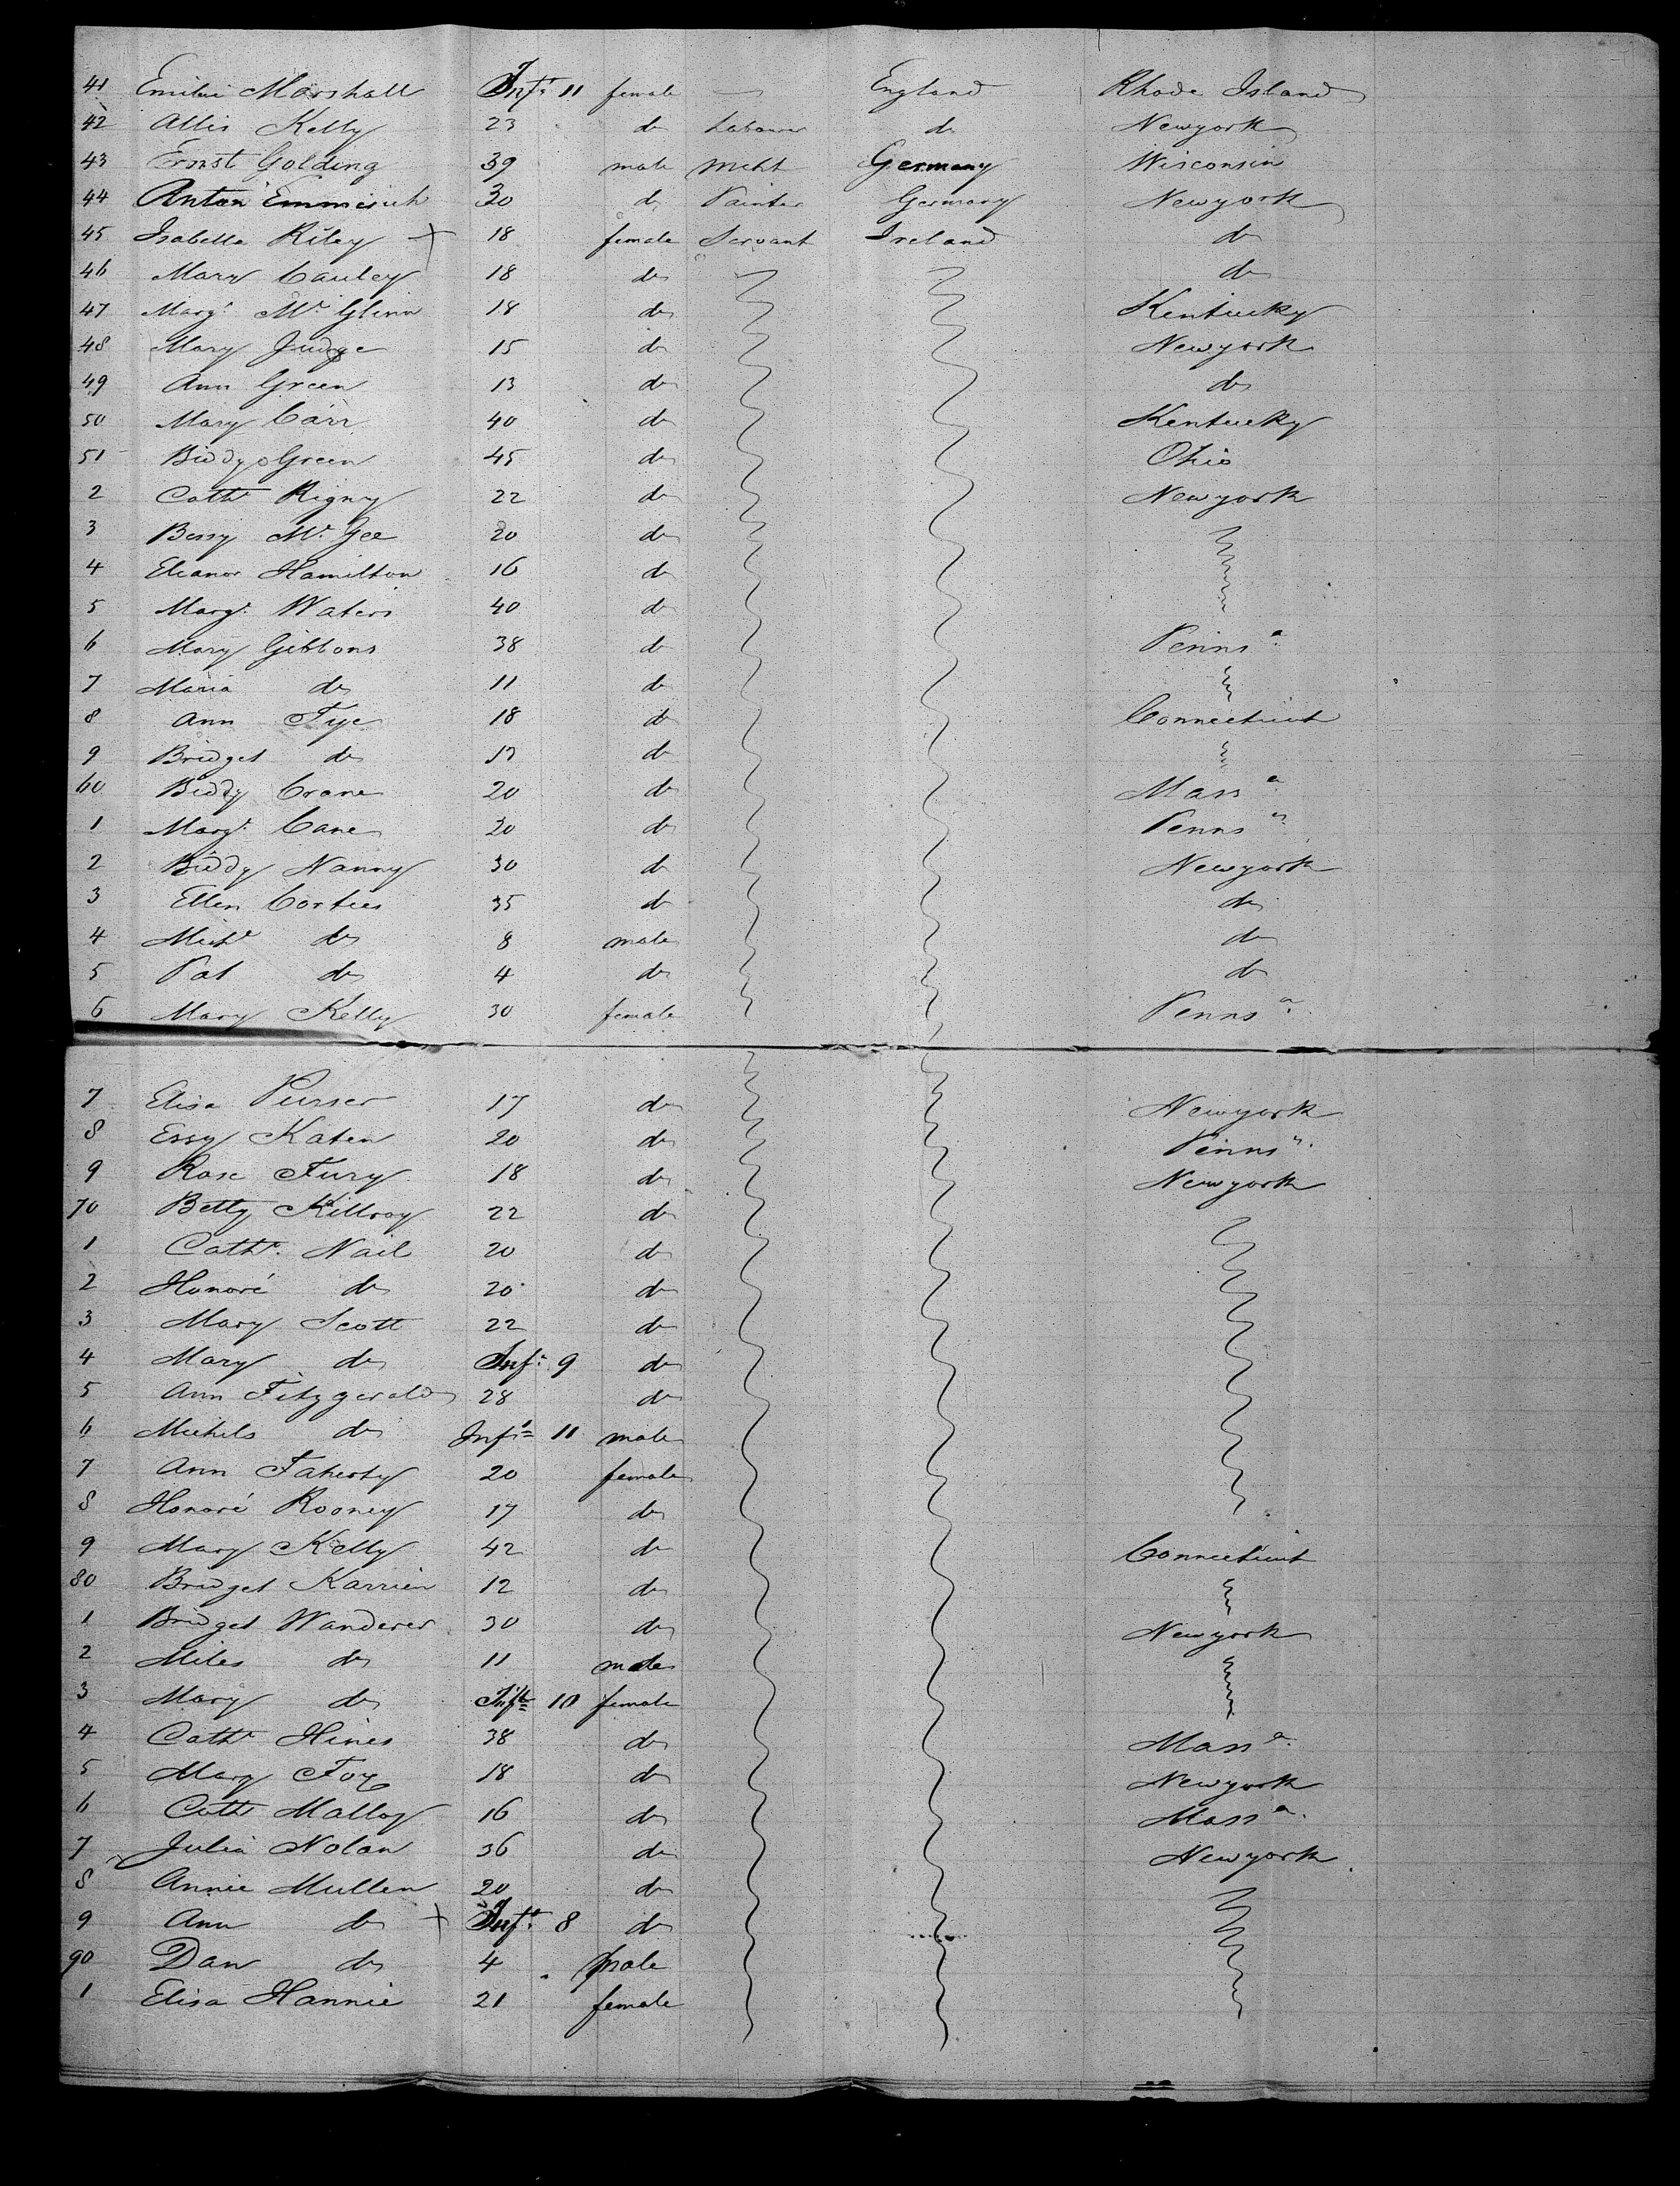 41 Emilie Marshall Inft. 11 female — England Rhode Island
42 Allis Kelly 23 do Labourer do Newyork
43 Ernst Golding 39 male Mcht Germany Wisconsin
44 Anton Emmerich 30 do Painter Germany Newyork
45 Isabella Riley + 18 female Servant Ireland do
46 Mary Cauley 18 do do
47 Margt. Mc Glinn 18 do Kentucky
48 Mary Judge 15 do Newyork
49 Ann Green 13 do do
50 Mary Carr 40 do Kentucky
51 Biddy Green 45 do Ohio
2 Cathe Rigny 22 do Newyork
3 Bessy Mc Gee 20 do
4 Eleanor Hamilton 16 do
5 Margt. Waters 40 do
6 Mary Gibbons 38 do Penns a.
7 Maria do 11 do
8 Ann Fye 18 do Connecticut
9 Bridget do 17 do
60 Biddy Crane 20 do Mass a.
1 Margt. Cane 30 do Penns a.
2 Biddy Nanny 30 do Newyork
3 Ellen Corties 35 do do
4 Michl do 8 male do
5 Pat do 4 do do
6 Mary Kelly 30 female Penns a.
7 Elisa Purser 17 do Newyork
8 Essy Katen 20 do Penns a.
9 Rose Fury 18 do Newyork
70 Betty Killroy 22 do
1 Cathe. Nail 20 do
2 Honoré do 20 do
3 Mary Scott 22 do
4 Mary do Inf. 9 do
5 Ann Fitzgerald 28 do
6 Michels do Inft 11 male
7 Ann Faherty 20 female
8 Honoré Rooney 17 do
9 Mary Kelly 42 do Connecticut
80 Bridget Karrien 12 do
1 Bridget Wanderer 30 do Newyork
2 Miles do 11 male
3 Mary do Inft 10 female
4 Cathe Hines 38 do Mass a.
5 Mary Fox 18 do Newyork
6 Cathe Malloy 16 do Mass a.
7 Julia Nolan 36 do Newyork
8 Annie Mullen 20 do
9 Ann do + Inft. 8 do
90 Dan do 4 male
1 Elisa Hannie 21 female